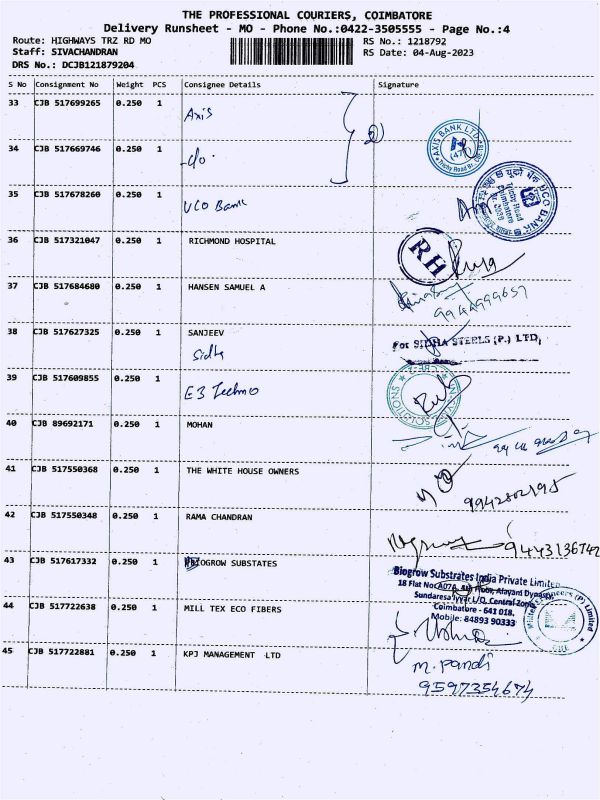 THE PROFESSIONAL COURIERS, COIMBATORE
Delivery Runsheet - MO - Phone No.:0422-3505555 - Page No.:4
Route: HIGHWAYS TRZ RD MO RS No.: 1218792
Staff: SIVACHANDRAN RS Date: 04-Aug-2023
DRS No.: DCJB121879204
S No Consignment No Weight PCS Consignee Details Signature
33 CJB 517699265 0.250 1 Axis
34 CJB 517669746 0.250 1 -do-
AXIS BANK LTD
35 CJB 517678260 0.250 1 UCO Bank
यूको बैंक UCO BANK
Trichy Road
Coimbatore
36 CJB 517321047 0.250 1 RICHMOND HOSPITAL
RH
37 CJB 517684680 0.250 1 HANSEN SAMUEL A
9944999659
38 CJB 517627325 0.250 1 SANJEEV
Sidha
For SIDHA STEELS (P.) LTD,
39 CJB 517609855 0.250 1 E3 Techno
40 CJB 89692171 0.250 1 MOHAN
41 CJB 517550368 0.250 1 THE WHITE HOUSE OWNERS
9942802195
42 CJB 517550348 0.250 1 RAMA CHANDRAN
9443136742
43 CJB 517617332 0.250 1 BIOGROW SUBSTATES
Biogrow Substrates India Private Limited
18 Flat No. A07A, 4th Floor, Alayam Dynasty,
Sundaresa Iyyar L/O, Central Zone,
Coimbatore - 641 018.
Mobile: 84893 90333
44 CJB 517722638 0.250 1 MILL TEX ECO FIBERS
45 CJB 517722881 0.250 1 KPJ MANAGEMENT LTD
M. Pandi
9597354674